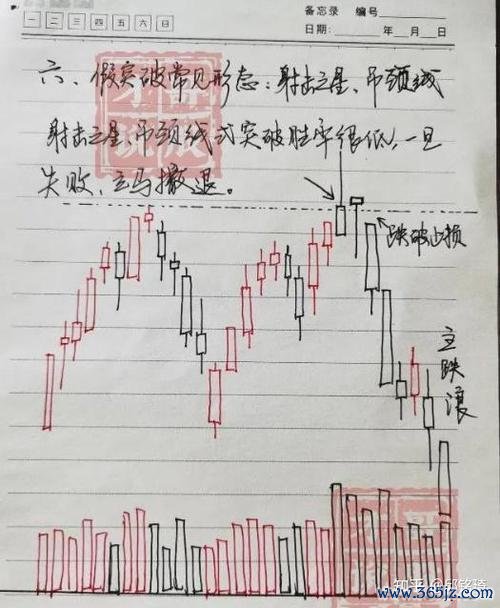 备忘录 编号
一 二 三 四 五 六 日
日期: 年 月 日
六、假突破常见形态:射击之星、吊颈线
射击之星、吊颈线式突破胜率很低,一旦
失败,立马撤退。
跌破止损
主跌浪
知乎 @邱铭琦
www.365jz.com